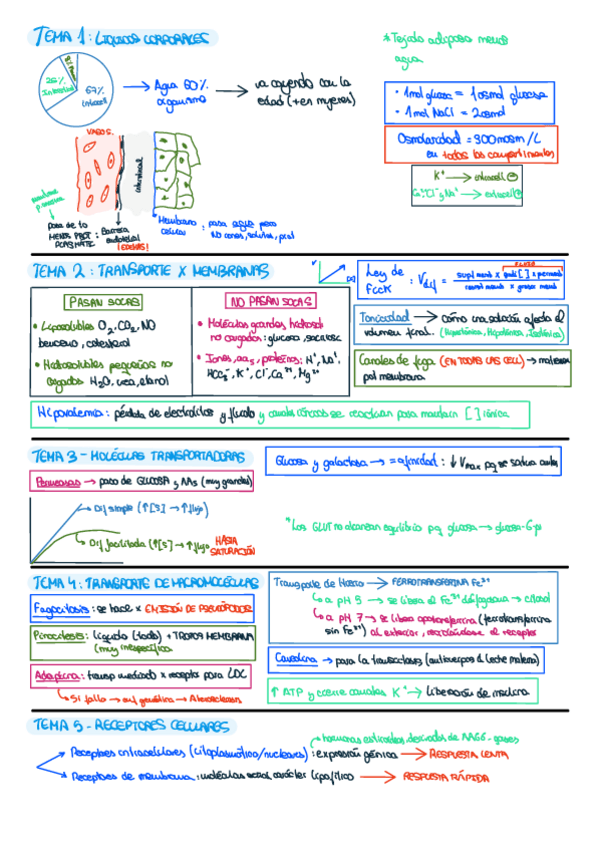 TEMA 1: LIQUIDOS CORPORALES
* Tejido adiposo menos
agua
25%
Intersticial
67%
Intracel
Agua 60%
organismo
va cayendo con la
edad (+ en mujeres)
• 1 mol glucosa = 1 osmol glucosa
• 1 mol NaCl = 2 osmol
Osmolaridad = 300 mosm/L
en todos los compartimentos
VASOS
K⁺ → intracell
Ca²⁺, Cl⁻ y Na⁺ → extracell
paso de to
MENOS PROT.
PLASMATIC
Barrera
endotelial
¡EDEMAS!
Membrana
celular
: pasa agua pero
NO iones, solutos, prot
TEMA 2: TRANSPORTE X MEMBRANAS
PASAN SOLAS
• Liposolubles O₂, CO₂, NO
benceno, colesterol
• Hidrosolubles pequeñas no
cargadas H₂O, urea, etanol
NO PASAN SOLAS
• Moléculas grandes hidrosol
no cargadas: glucosa, sacarosa
• Iones, aas, proteínas: H⁺, Na⁺,
HCO₃⁻, K⁺, Cl⁻, Ca²⁺, Mg²⁺
Ley de
Fick
: Vdif =
Tonicidad → como una solución afecta al
volumen final. (Hipertónica, Hipotónica, Isotónica)
Canales de fuga (EN TODAS LAS CELL) → mantienen
pot membrana
Hipovolemia: pérdida de electrolitos y fluido y canales iónicos se reactivan para mantener [ ] iónica
TEMA 3 - MOLÉCULAS TRANSPORTADORAS
Permeasas → paso de GLUCOSA y AAs (muy grandes)
Glucosa y galactosa → = afinidad: ↓ Vmax pq se satura antes
Dif simple (↑[S] → ↑flujo)
Dif facilitada (↑[S] → ↑flujo HASTA
SATURACIÓN)
* Los GLUT no alcanzan equilibrio pq glucosa → glucosa-6p
TEMA 4: TRANSPORTE DE MACROMOLÉCULAS
Fagocitosis: se hace x EMISIÓN DE PSEUDÓPODOS
Pinocitosis: líquido (todo) + TROZOS MEMBRANA
(muy inespecífica
Adaptina: transp mediado x receptor para LDL
Si falla → enf genética → Aterosclerosis
Transporte de Hierro → FERROTRANSFERRINA Fe³⁺
a pH 5 → se libera el Fe³⁺ del fagosoma → citosol
a pH 7 → se libera apotransferrina (ferrotransferrina
sin Fe³⁺) al exterior, reciclándose el receptor
Caveolina → para la transcitosis (anticuerpos d leche materna)
↑ ATP y cierre canales K⁺ → liberación de insulina
TEMA 5 - RECEPTORES CELULARES
Receptores intracelulares (citoplasmático/nucleares): expresión génica → RESPUESTA LENTA
Receptores de membrana: moléculas señal carácter lipofílico → RESPUESTA RÁPIDA